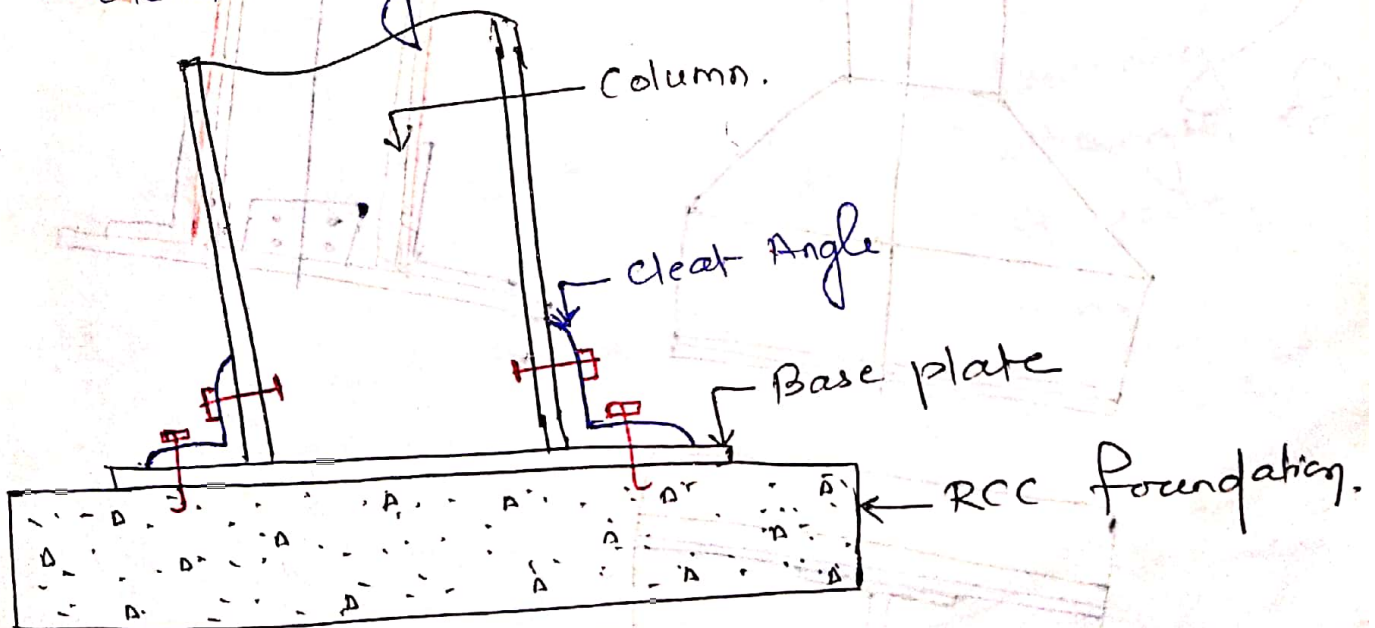 Column.
Cleat Angle
Base plate
RCC foundation.